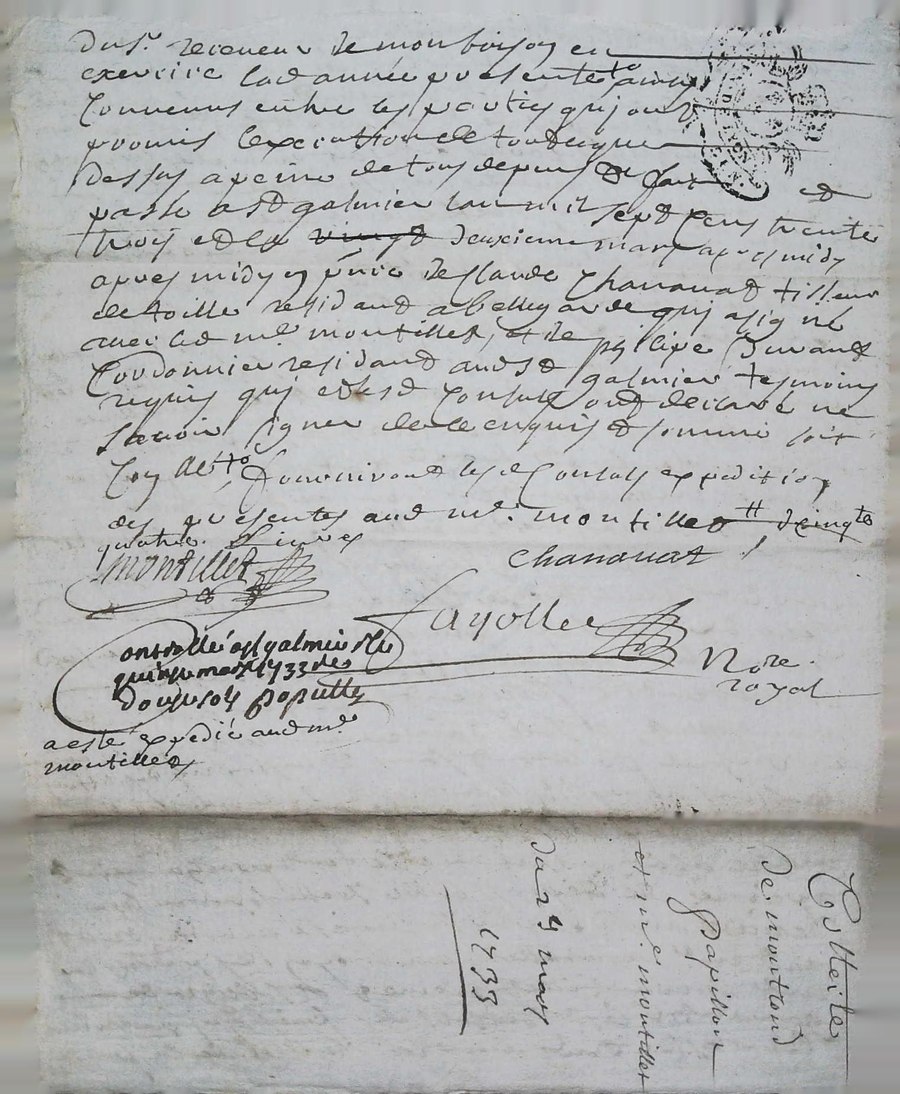 dus.r receveur de monbrison en
exercice lad année presente to ainsy
Convenus entre les parties qui ont
promis l'execution de tout ceque
dessus a peine de tous depens fait et
passé a st galmier lan mil sept Cens trente
trois et le vingt deuxieme mars apres midy
apres midy en pnce de Claude Chanavat tilleur
de toille residant a bellegarde qui a signé
avec led me montillet, et de philipe Durand
Cordonnier residant aud st galmier tesmoins
requis qui et lesd Consuls ont declaré ne
scavoir signer de ce enquis et sommé soit
Con
fourniront lesd Consuls expedition
des presentes aud me. montillet
quatre
montillet
Chanavat
fayolle
Nore.
royal
Controllé a st galmier le
quinse mars 1733
douse sols
a esté expedié aud me
montillet
Colleite
de montrond
papillon
et me montillet
du 2 mars
1733